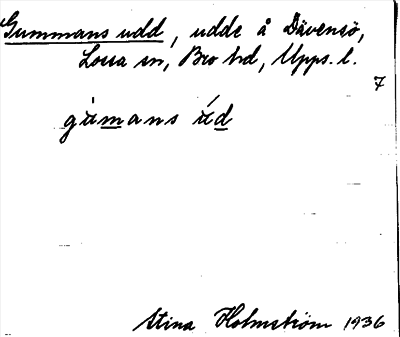 Gummans udd, udde å Dävensö,
Lossa sn, Bro hd, Upps. l.
7
gùmans úd
Stina Holmström 1936